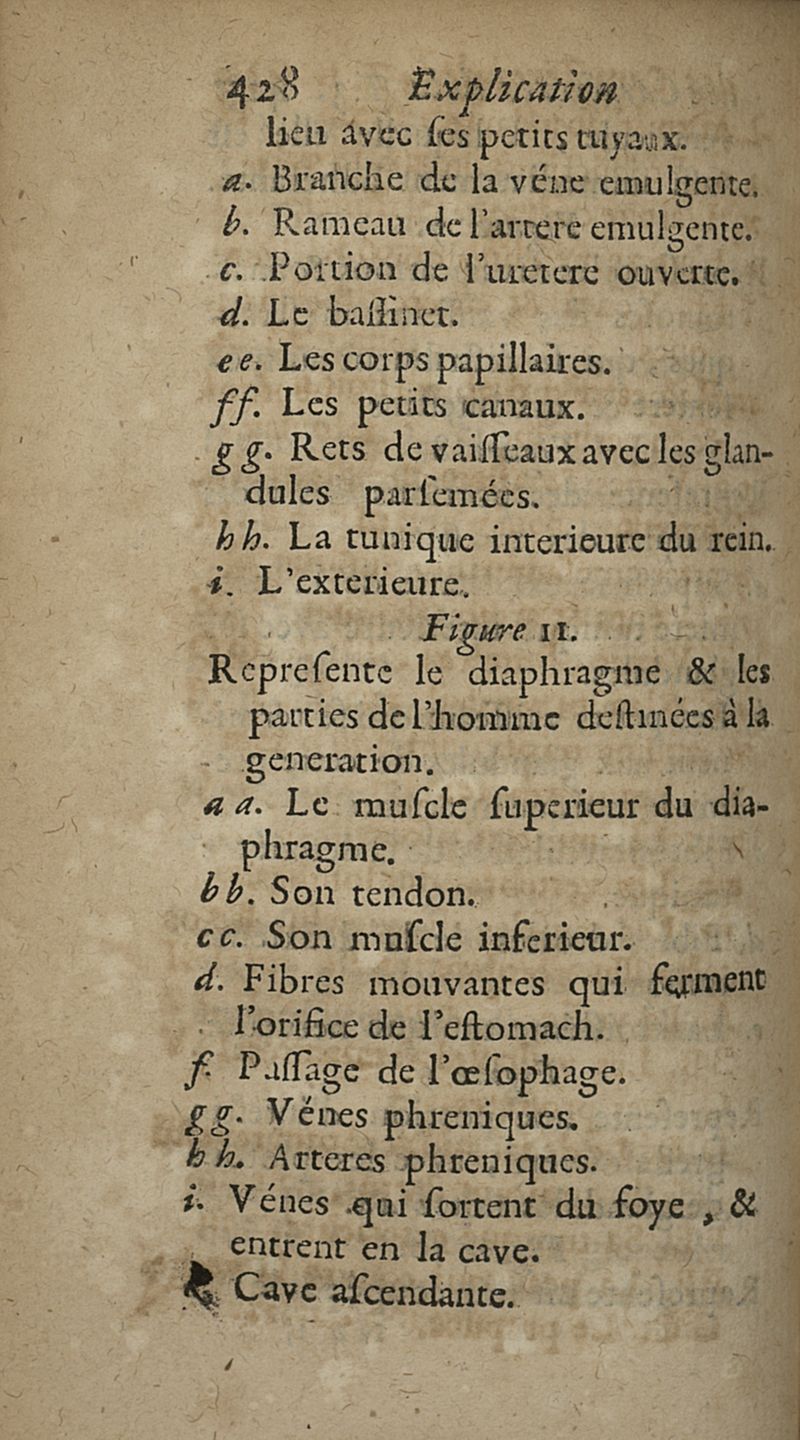 428 Explication
lieu avec ſes petits tuyaux.
a. Branche de la véne emulgente.
b. Rameau de l'artere emulgente.
c. Portion de l'uretere ouverte.
d. Le baſſinet.
e e. Les corps papillaires.
ff. Les petits canaux.
g g. Rets de vaiſſeaux avec les glan-
dules parſemées.
h h. La tunique interieure du rein.
i. L'exterieure.
Figure II.
Repreſente le diaphragme & les
parties de l'homme deſtinées à la
generation.
a a. Le muſcle ſuperieur du dia-
phragme.
b b. Son tendon.
c c. Son muſcle inferieur.
d. Fibres mouvantes qui ferment
l'orifice de l'eſtomach.
f. Paſſage de l'œſophage.
g g. Vénes phreniques.
h h. Arteres phreniques.
i. Vénes qui ſortent du foye , &
entrent en la cave.
Cave aſcendante.